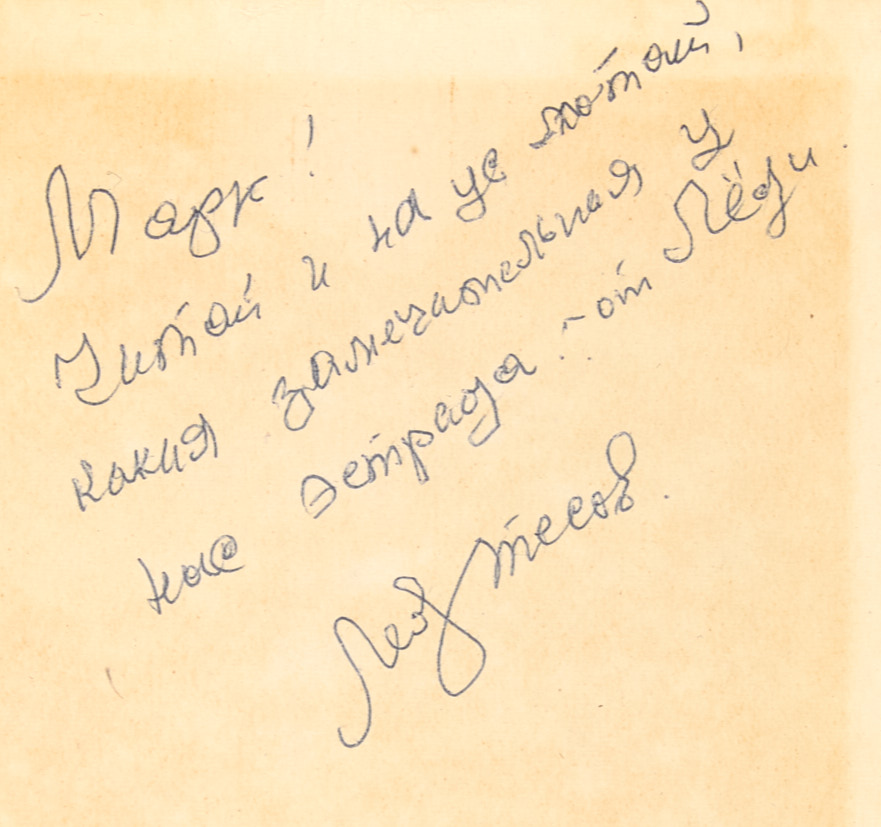 Марк!
Читай и на ус мотай,
какая замечательная у
нас эстрада :- от Лёди
Утесов.